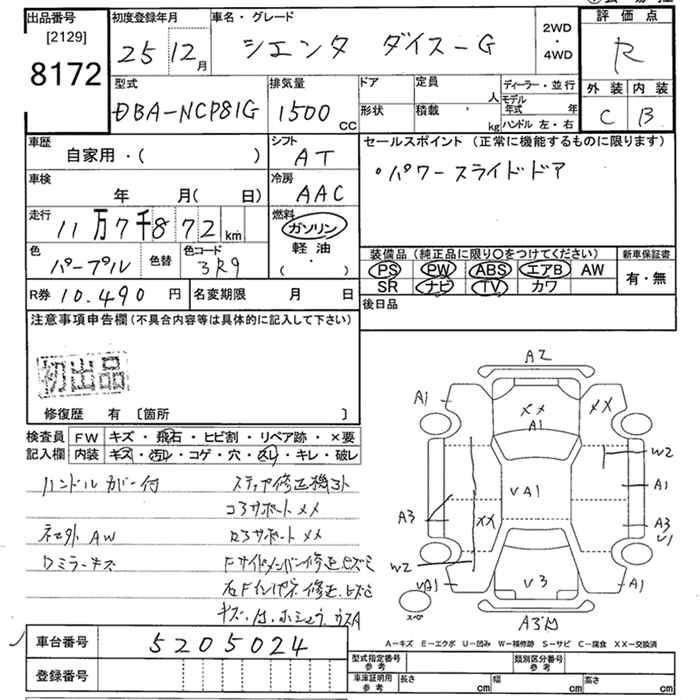 出品番号 初度登録年月 車名・グレード 2WD・4WD 評価点
[2129]
8172 25 12月 シエンタ ダイス-G R
型式 排気量 ドア 定員 人 ディーラー・並行 外装 内装
DBA-NCP81G 1500cc 形状 積載 kg モデル年式 年 ハンドル 左・右 C B
車歴 シフト セールスポイント (正常に機能するものに限ります)
自家用・( ) AT ・パワースライドドア
車検 年 月(日) 冷房 AAC
走行 11万7千872km 燃料 ガソリン 軽油 (・)
色 パープル 色替 色コード 3R9
装備品 (純正品に限り○をつけてください) 新車保証書
PS PW ABS エアB AW 有・無
SR ナビ TV カワ
R券 10.490円 名変期限 月 日 後日品
注意事項申告欄(不具合内容等は具体的に記入して下さい)
初出品
修復歴 有 〔箇所 〕
検査員 FW キズ・飛石・ヒビ割・リペア跡・×要
記入欄 内装 キズ・汚レ・コゲ・穴・スレ・キレ・破レ
ハンドルカバー付 ステップ修正機ヨト
コアサポート XX
ネセ外 AW ロアサポート XX
Dミラーキズ Fサイドメンバー修正ヒズミ
右Fインパネ修正、ヒズミ
A2
A1 XX A1 XX
W2
VA1 A1
A3 XX A3 V1
W2
VA1 V3 A1
スペア
A3
A-キズ E-エクボ U-凹み W-補修跡 S-サビ C-腐食 XX-交換済
車台番号 5205024
登録番号
型式指定番号 参考 類別区分番号 参考
車庫証明用 参考 長さ cm 幅 cm 高さ cm